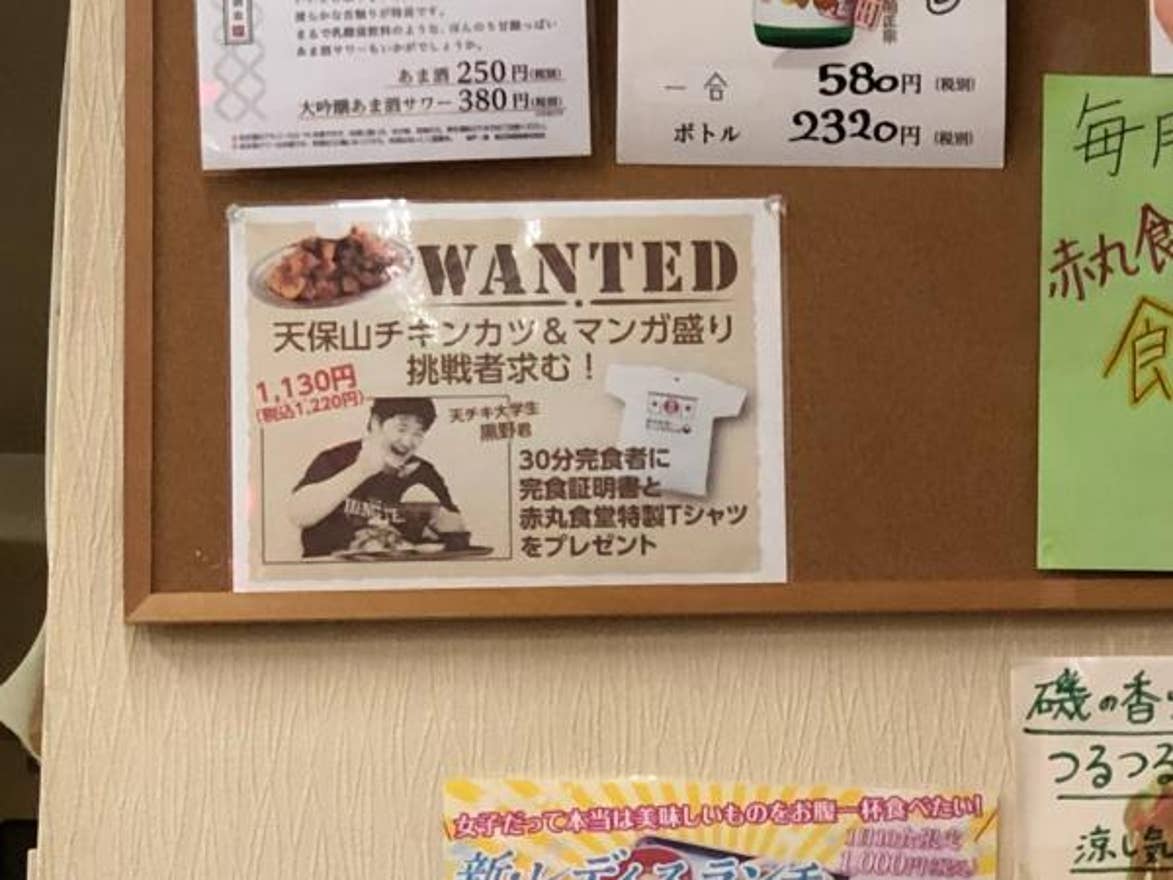 まるで乳酸菌飲料のような、ほんのり甘酸っぱい
あま酒サワーもいかがでしょうか。
あま酒 250円(税別)
大吟醸あま酒サワー 380円(税別)
一合 580円 (税別)
ボトル 2320円 (税別)
WANTED
天保山チキンカツ&マンガ盛り
挑戦者求む!
1,130円
(税込1,220円)
天チキ大学生
黒野君
30分完食者に
完食証明書と
赤丸食堂特製Tシャツ
をプレゼント
毎月
赤丸食
食
磯の香
つるつる
涼し気
女子だって本当は美味しいものをお腹一杯食べたい!
1日10食限定
1,000円(税込)
新・レディスランチ